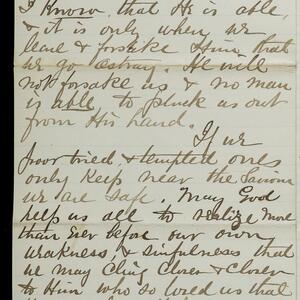 I know that He is able,
& it is only when we
leave & forsake Him, that
we go astray. He will
not forsake us & no man
is able, to pluck us out
from His hand.
If we
poor tried & tempted ones
only keep near the Saviour
we are safe. May God
help us all to realize more
than ever before our own
weakness & sinfulness that
we may cling closer & closer
to Him who so loved us that